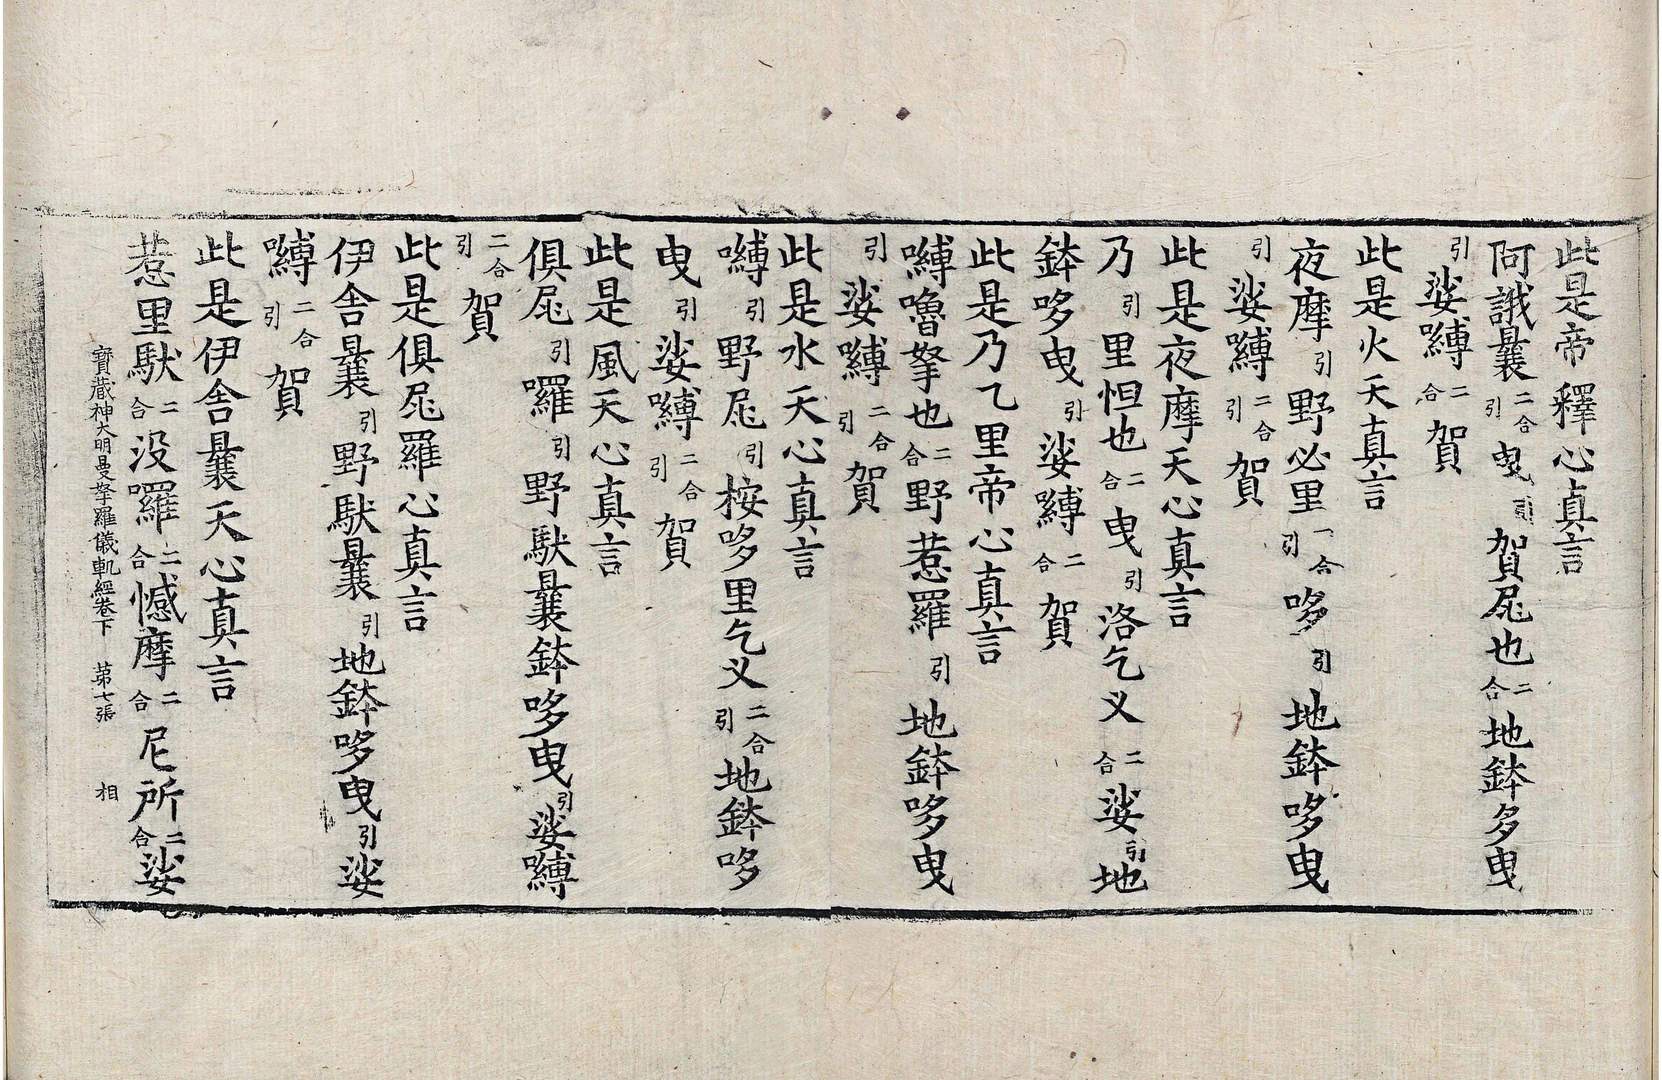 此是帝釋心真言
阿誐曩二合引曳引賀屁也二合地鉢多曳
引娑嚩二合賀
此是火天真言
夜摩引野必里二合引哆引地鉢哆曳
引娑嚩二合引賀
此是夜摩天心真言
乃引里怛也二合曳引洛乞叉二合娑引地
鉢哆曳引娑嚩二合賀
此是乃乙里帝心真言
嚩嚕拏也二合野惹羅引地鉢哆曳
引娑嚩二合引賀
此是水天心真言
嚩引野屁引桉哆里乞叉二合引地鉢哆
曳引娑嚩二合引賀
此是風天心真言
俱屁引囉引野馱曩鉢哆曳引娑嚩
二合引賀
此是俱屁羅心真言
伊舍曩引野馱曩引地鉢哆曳引娑
嚩二合引賀
此是伊舍曩天心真言
惹里馱二合没囉二合憾摩二合尼所二合娑
寶藏神大明曼拏羅儀軌經卷下 第七張 相